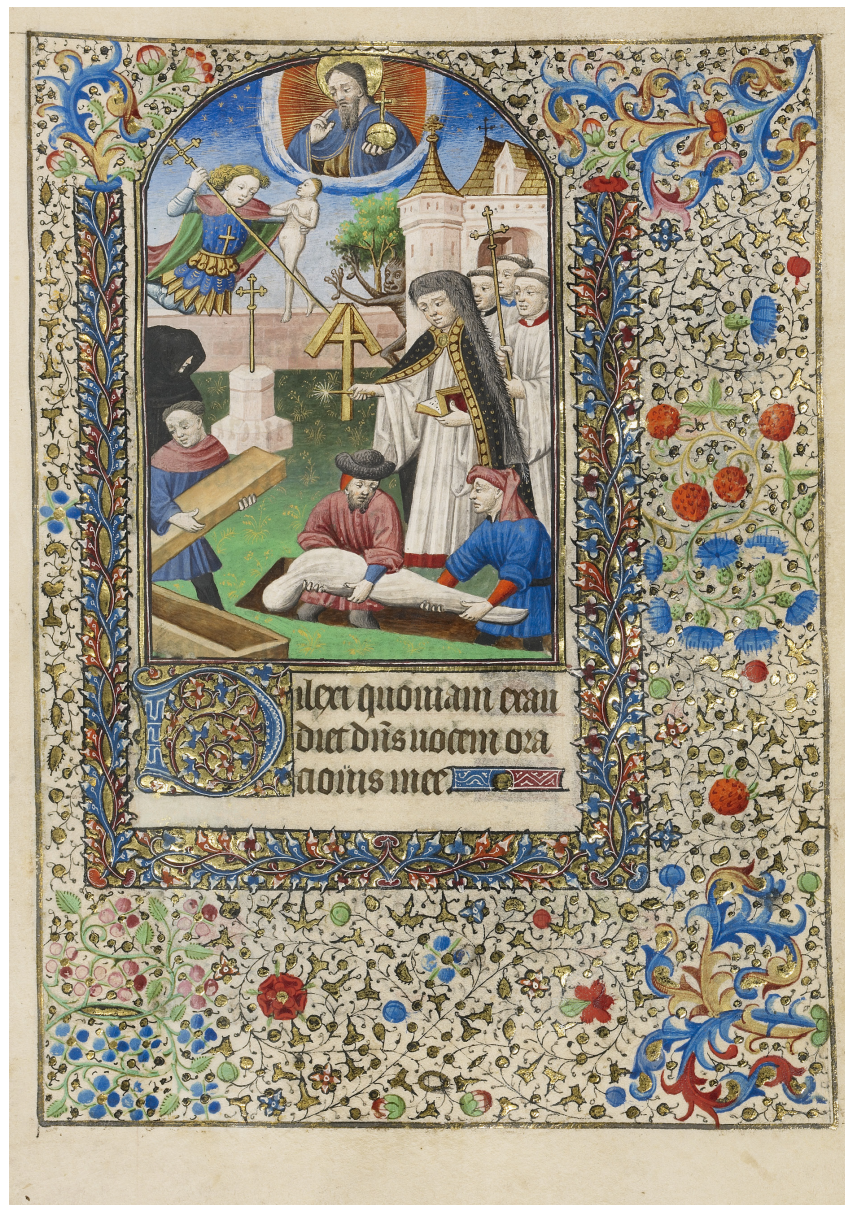 Dilexi quoniam exau
diet dñs uocem ora
cionis mee